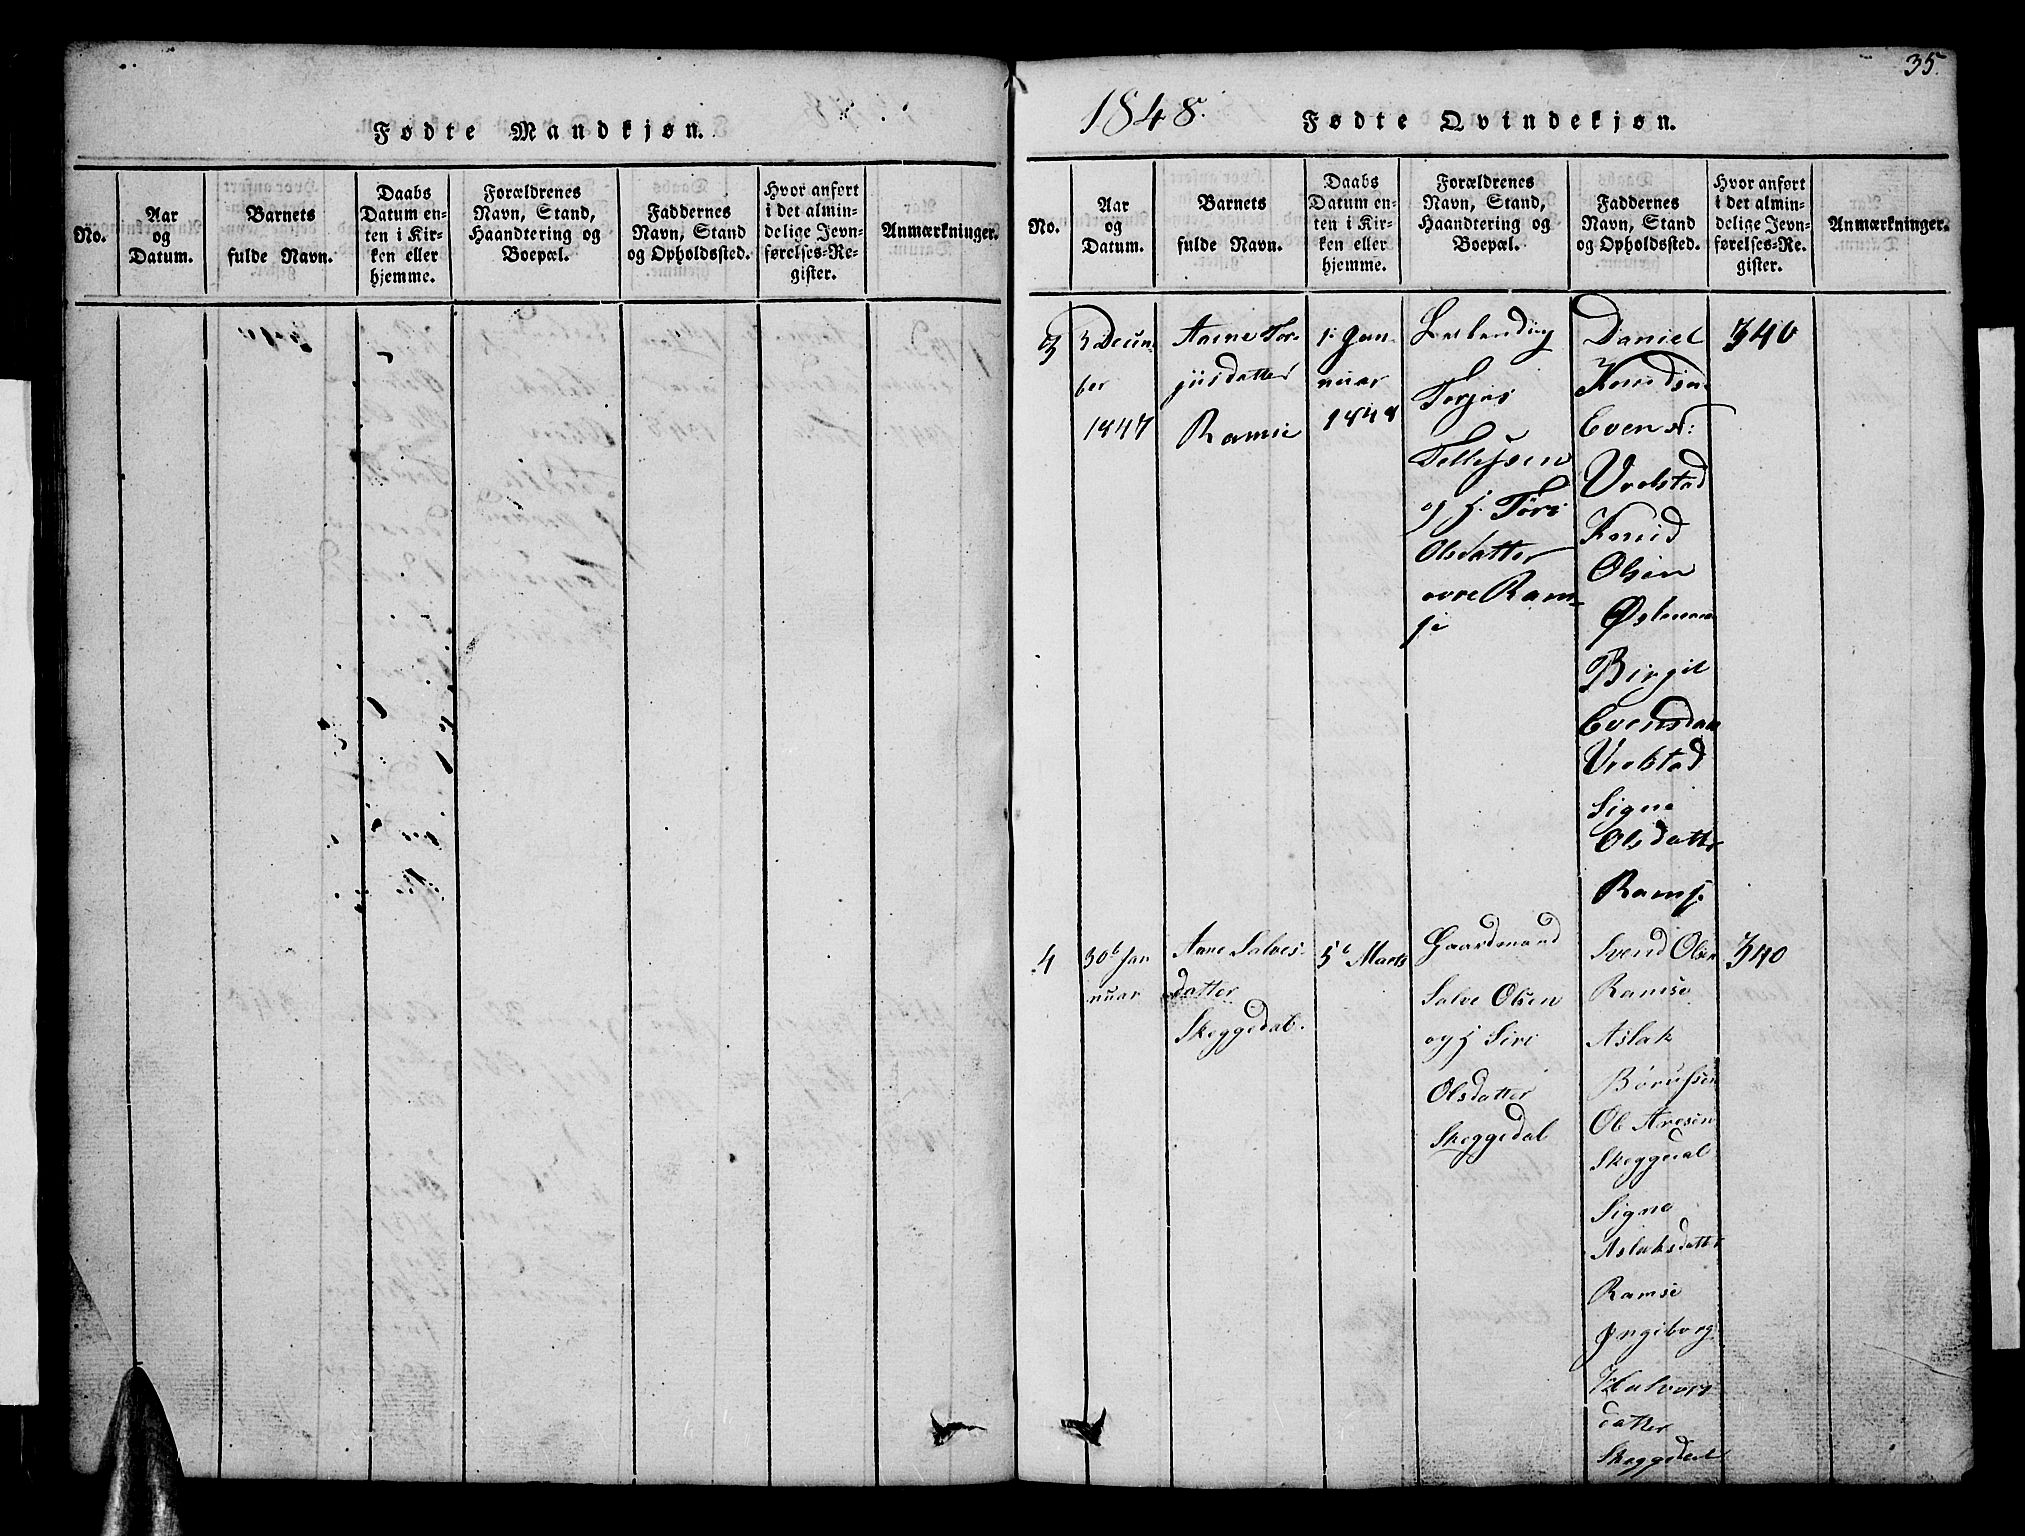 Fødte Mandkjøn.
No.
Aar
og
Datum.
Barnets
fulde Navn.
Daabs
Datum en-
ten i Kir-
ken eller
hjemme.
Forældrenes
Navn, Stand,
Haandtering og
Boepæl.
Faddernes
Navn, Stand
og Opholdssted.
Hvor anført
i det almin-
delige Jevn-
førelses-Re-
gister.
Anmærkninger.
35.
1848.
Fødte Qvindekjøn.
No.
Aar
og
Datum.
Barnets
fulde Navn.
Daabs
Datum en-
ten i Kir-
ken eller
hjemme.
Forældrenes
Navn, Stand,
Haandtering og
Boepæl.
Faddernes
Navn, Stand
og Opholdssted.
Hvor anført
i det almin-
delige Jevn-
førelses-Re-
gister.
Anmærkninger.
3
3 Decem-
ber
1847
Aasne Tor-
jusdatter
Ramse
1. Jan-
nuar
1848
Torjus
Tellefsen
og H. Tore
Olsdatter
øvre Ram-
se
Daniel
Knudsen
Evenst:
Vrolstad
Knud
Olsen
Birgit
Evensdatt
Vrolstad
Signe
Olsdatter
Rams.
340
4
30t Jan
nuar
Anne Salves-
datter
Skeggedal.
5t Marts
Gaardmand
Salve Olsen
og H Siri
Olsdatter
Skeggedal
Svend Olsen
Ramse
Aslak
Børufsen
Ol Aresen
Skeggedal
Signe
Aslaksdatter
Ramse
Ingiborg
Halvors
datter
Skeggedal
340